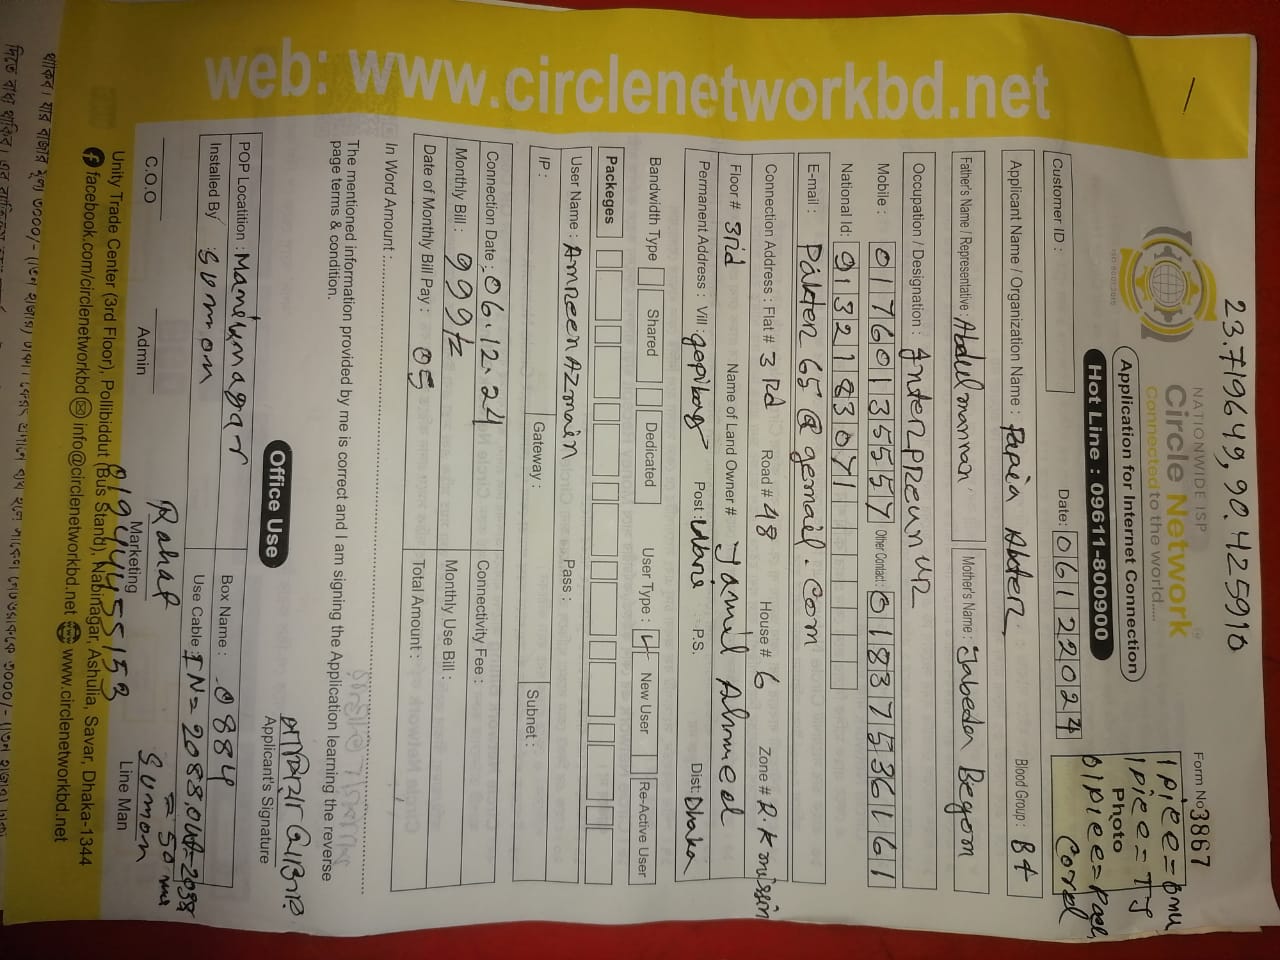 23.719649, 90.425910
NATIONWIDE ISP
Circle Network
Connected to the world.....
ISO 9001:2015
Application for Internet Connection
Hot Line : 09611-800900
Form No 3867
1 piece = onu
1 piece = TJ
Photo
01 piece = Pach
Cord
Customer ID :
Date: 06122024
Applicant Name / Organization Name : Papia Akter
Blood Group : B+
Father's Name / Representative : Abdul mannan
Mother's Name : Jabeda Begom
Occupation / Designation :
Mobile : 01760135557 Other Contact: 01837536161
National Id: 9132183071
E-mail : Pakter65@gemail.com
Connection Address : Flat # 3rd Road # 48 House # 6 Zone # R.K mission
Floor # 3rd Name of Land Owner # Jamel Ahmed
Permanent Address : Vill : gopibag Post : P.S. Dist: Dhaka
Bandwidth Type Shared Dedicated User Type : New User Re-Active User
Packeges
User Name : AmreenAzmain Pass :
IP : Gateway : Subnet :
Connection Date : 06.12.24 Connectivity Fee :
Monthly Bill : 999/= Monthly Use Bill :
Date of Monthly Bill Pay : 05 Total Amount :
In Word Amount :
The mentioned information provided by me is correct and I am signing the Application learning the reverse
page terms & condition.
Applicant's Signature
Office Use
POP Locatition : Maniknagar Box Name : 0884
Installed By : Sumon Use Cable : IN= 2088, out=2038
= 50 m
C.O.O Admin Rahat Marketing Sumon Line Man
01944455153
Unity Trade Center (3rd Floor), Pollibiddut (Bus Stand), Nabinagar, Ashulia, Savar, Dhaka-1344
facebook.com/circlenetworkbd info@circlenetworkbd.net www.circlenetworkbd.net
web: www.circlenetworkbd.net